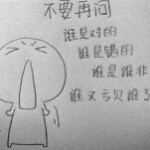 不要再问
谁是对的
谁是错的
谁是谁非
谁又亏欠谁了